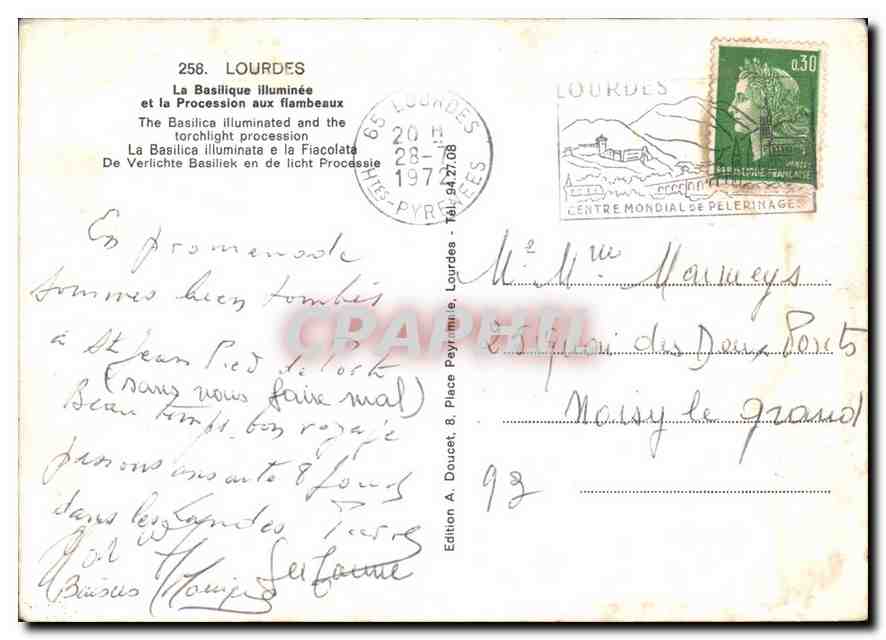 256. LOURDES
La Basilique illuminée
et la Procession aux flambeaux
The Basilica illuminated and the
torchlight procession
La Basilica illuminata e la Fiacolata
De Verlichte Basiliek en de licht Processie
65 LOURDES
20 H
28-7
1972
HTES-PYRENEES
LOURDES
CENTRE MONDIAL DE PELERINAGES
0,30
REPUBLIQUE FRANCAISE
En promenade
sommes bien tombés
à St Jean Pied de Port
(sans nous faire mal)
Beau temps, bon voyage
passons ensuite 8 jours
dans les Landes Pierre
Baisers
Suzanne
Mr Mme
25 Quai des Deux Ponts
Noisy le grand
93
Edition A. Doucet, 8, Place Peyramale, Lourdes - Tél. 94.27.08
CPAPHIL